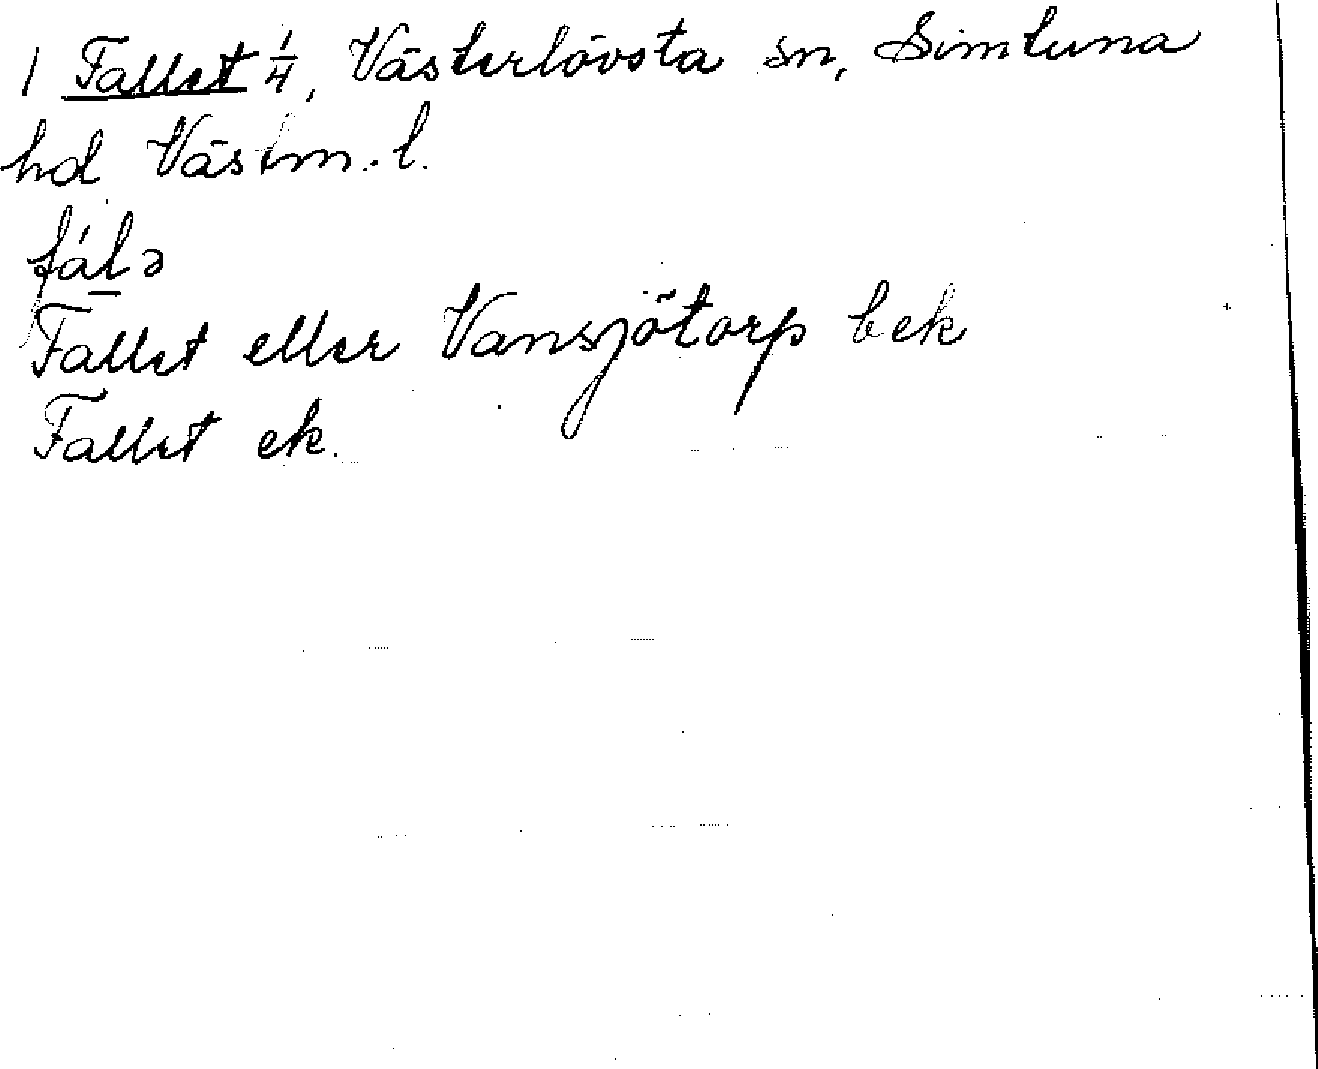 1 Fallet 1/4, Västerlövsta sn, Simtuna
hd Västm. l.
fál̲ə
Fallet eller Vansjötorp bek
Fallet ek.